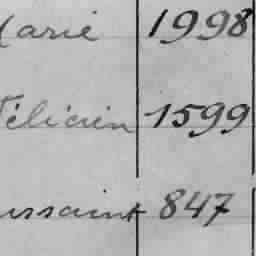 Marie 1998
Félicien 1599
ussaint 847